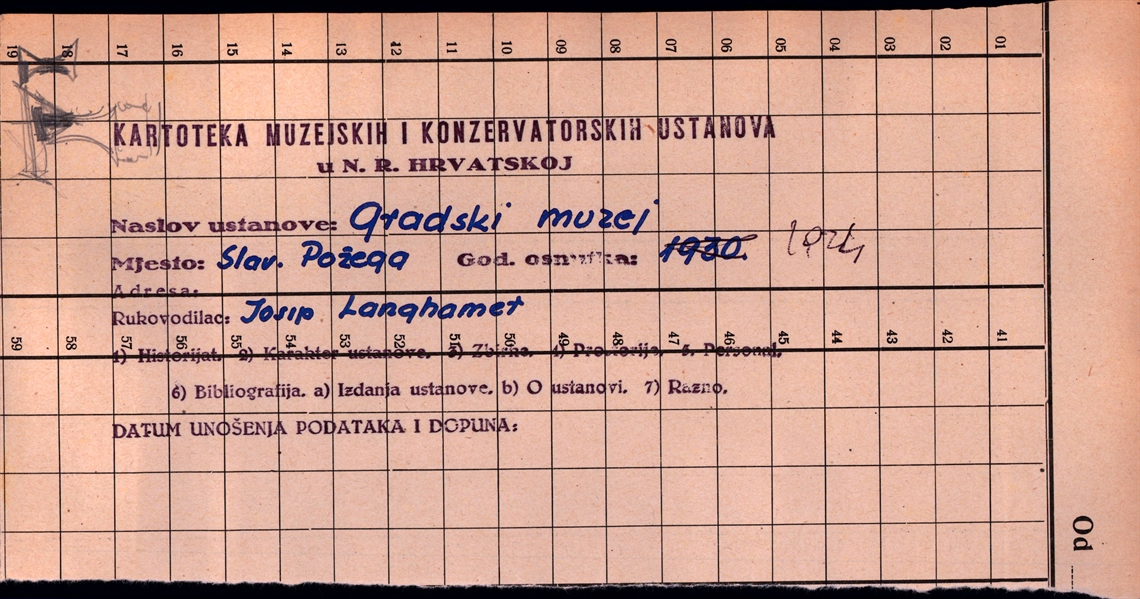 19 18 17 16 15 14 13 12 11 10 09 08 07 06 05 04 03 02 01
KARTOTEKA MUZEJSKIH I KONZERVATORSKIH USTANOVA
u N. R. HRVATSKOJ
Naslov ustanove: Gradski muzej
Mjesto: Slav. Požega God. osnutka: 1930. 1924
Adresa:
Rukovodilac: Josip Langhamet
59 58 57 56 55 54 53 52 51 50 49 48 47 46 45 44 43 42 41
1) Historijat. 2) Karakter ustanove. 3) Zbirke. 4) Prostorije. 5. Personal.
6) Bibliografija. a) Izdanja ustanove. b) O ustanovi. 7) Razno.
DATUM UNOŠENJA PODATAKA I DOPUNA:
Od